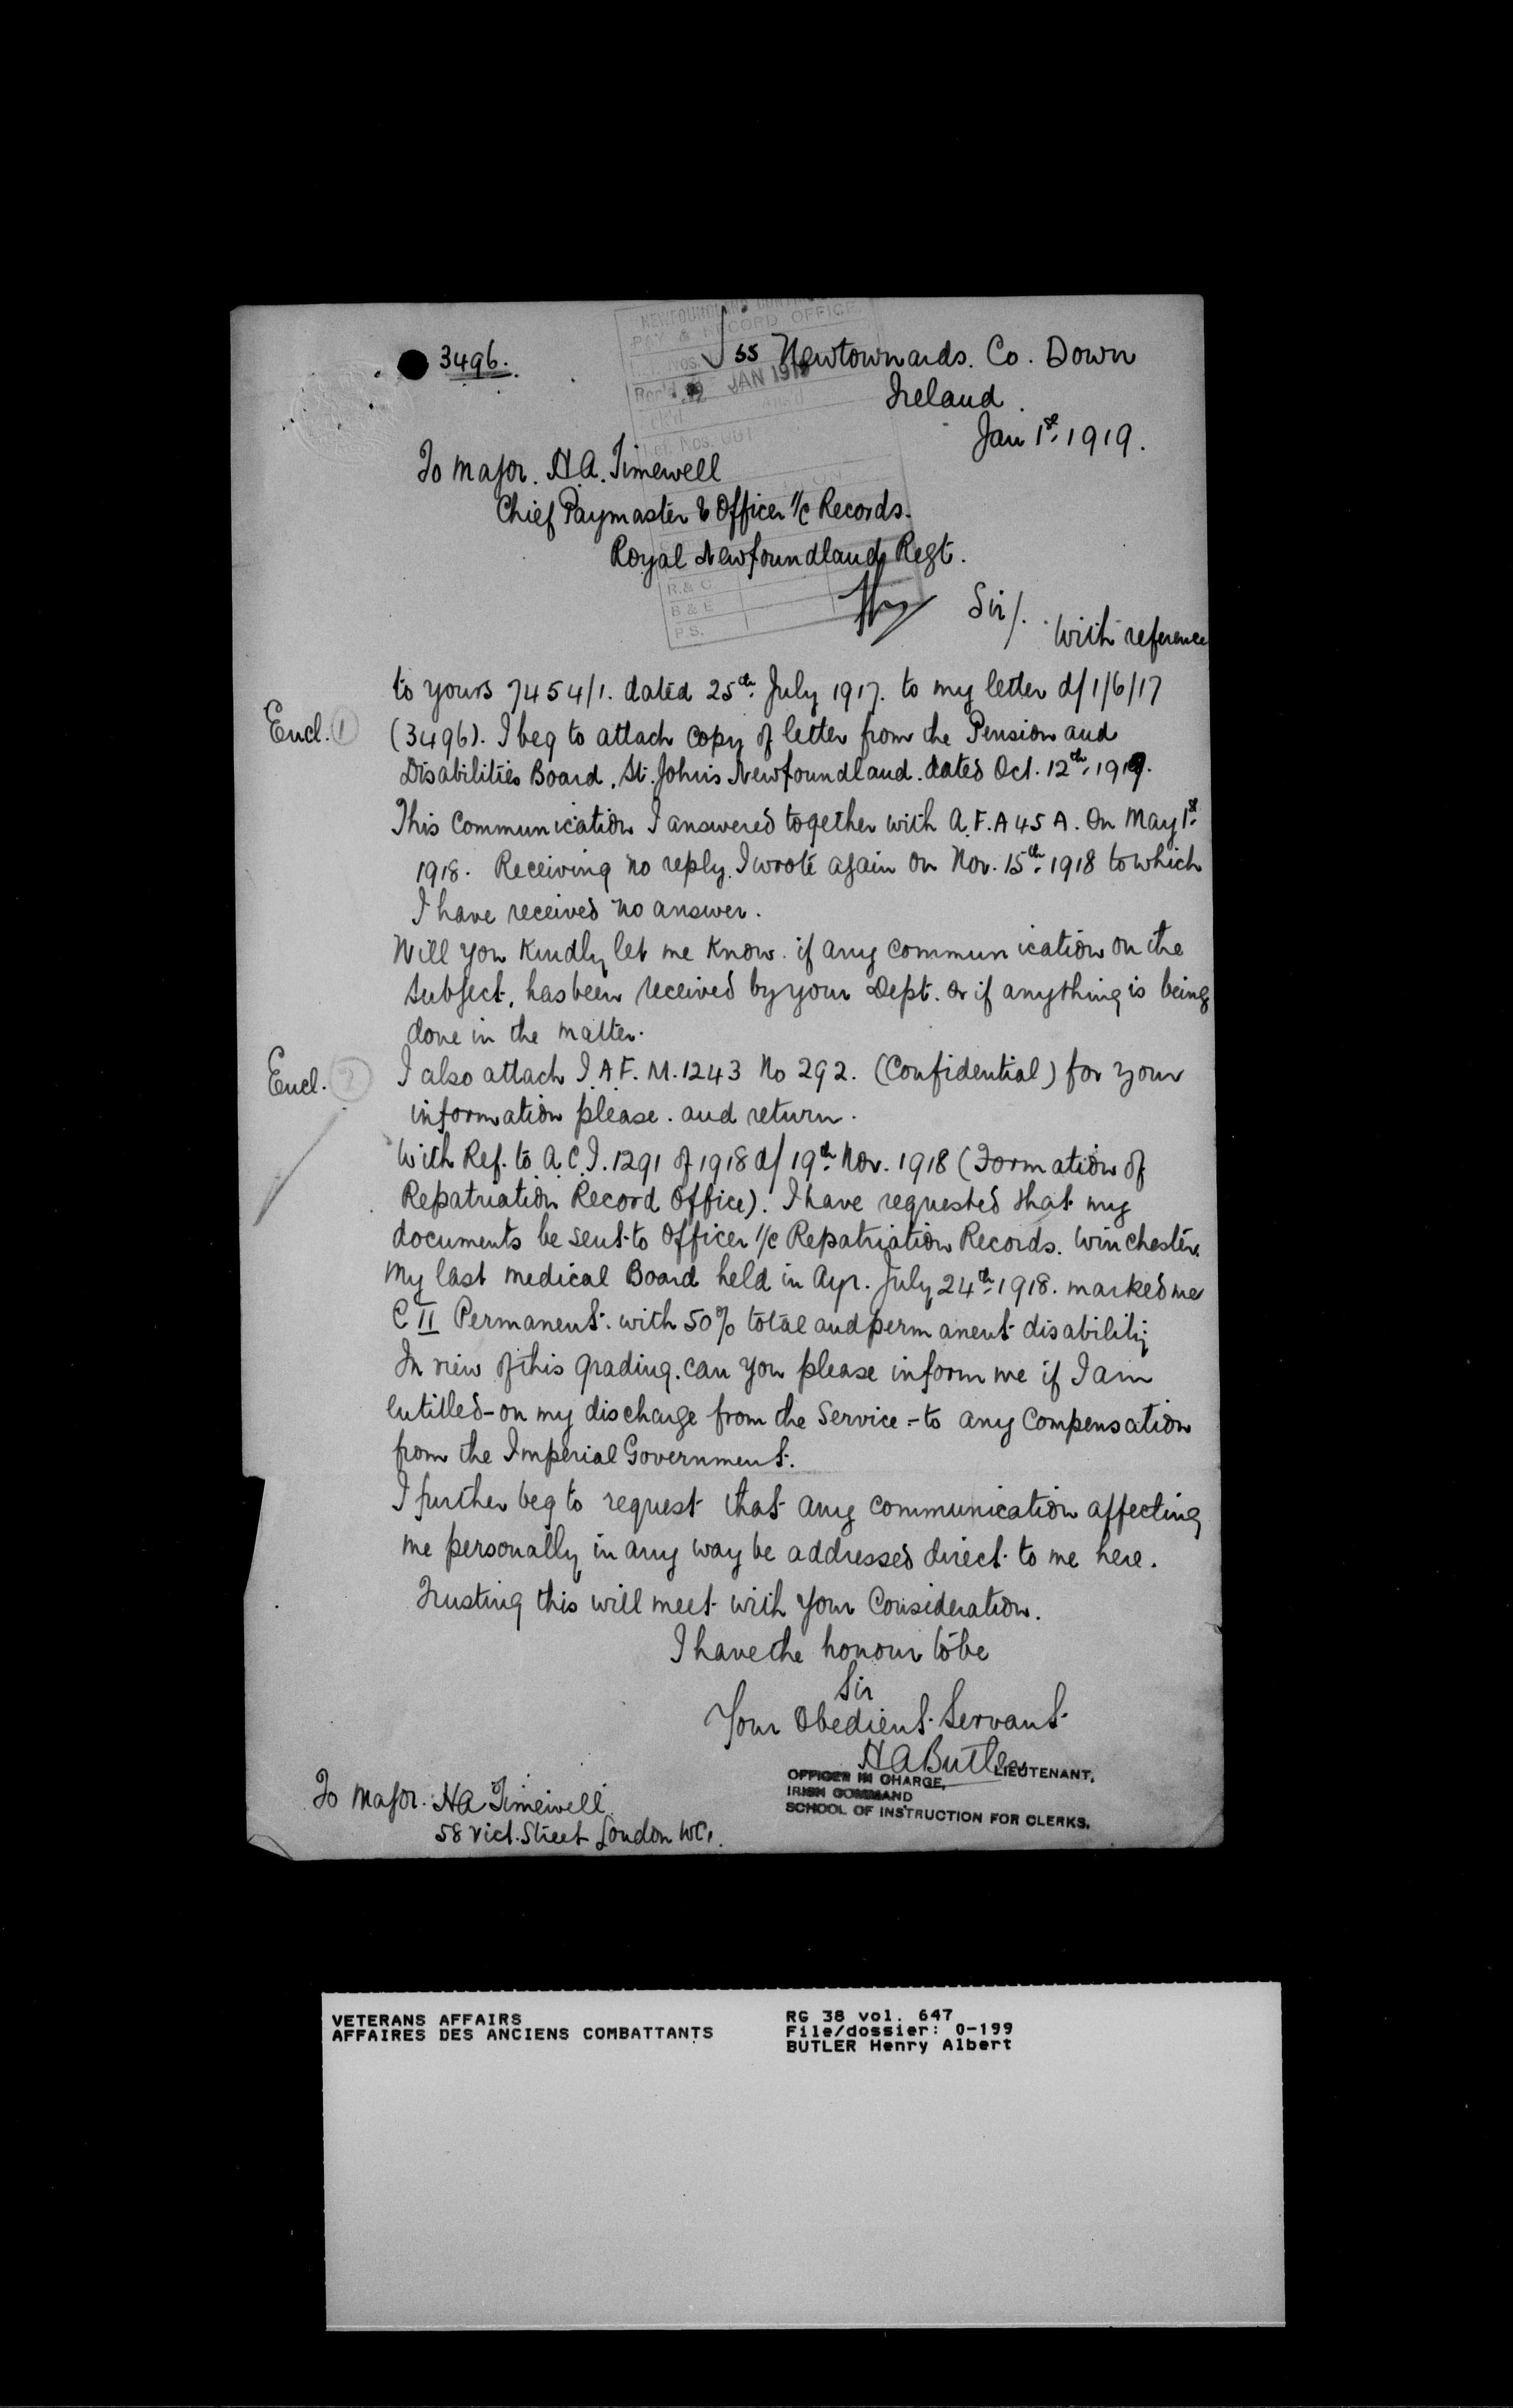 3496.
NEWFOUNDLAND
PAY & RECORD OFFICE
55 Newtownards. Co. Down
JAN 1919
Ireland.
Jan 1st. 1919.
To Major. H.A. Timewell
Chief Paymaster & Officer I/c Records.
Royal Newfoundland Regt.
R. & C
B & E
P.S.
Sir/.
With reference
to yours 7454/1. dated 25th July 1917. to my letter d/1/6/17
Encl. 1
(3496). I beg to attach copy of letter from the Pension and
Disabilities Board, St. John's Newfoundland. dated Oct. 12th. 1917.
This Communication I answered together with A.F.A45A. On May 1st.
1918. Receiving no reply. I wrote again on Nov. 15th. 1918 to which
I have received no answer.
Will you Kindly let me Know. if any communication on the
subject, has been received by your Dept. or if anything is being
done in the matter.
Encl. 2
I also attach I.A.F.M.1243 No 292. (Confidential) for your
information please. and return.
With Ref. to A.C.I. 1291 of 1918 d/19th Nov. 1918 (Formation of
Repatriation Record Office). I have requested that my
documents be sent to Officer I/c Repatriation Records. Winchester.
My last Medical Board held in Ayr. July 24th. 1918. marked me
C II Permanent. with 50% total and permanent disability
In view of this grading. can you please inform me if I am
entitled - on my discharge from the Service - to any Compensation
from the Imperial Government.
I further beg to request that any communication affecting
me personally in any way be addressed direct to me here.
Trusting this will meet with your Consideration.
I have the honour to be
Sir
Your Obedient Servant
H A Butler
LIEUTENANT,
OFFICER IN CHARGE,
IRISH COMMAND
SCHOOL OF INSTRUCTION FOR CLERKS.
To Major. H A Timewell.
58 Vict. Street London WC1.
VETERANS AFFAIRS
AFFAIRES DES ANCIENS COMBATTANTS
RG 38 vol. 647
File/dossier: 0-199
BUTLER Henry Albert